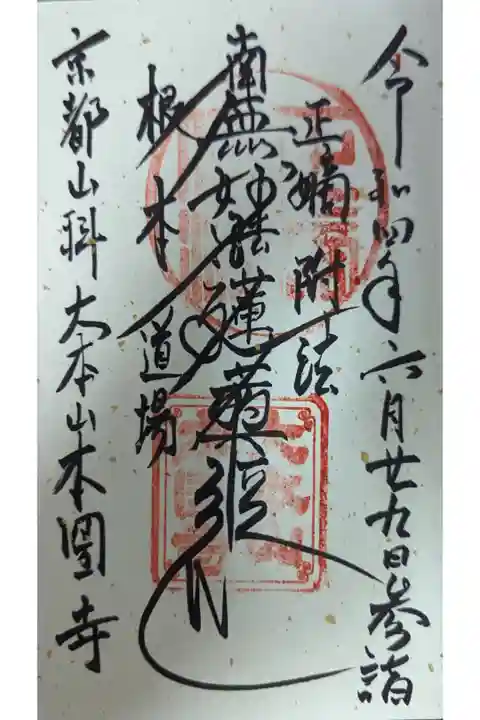 令和四年六月廿九日参詣
正嫡附法
南無妙法蓮華経
根本道場
京都山科大本山本圀寺